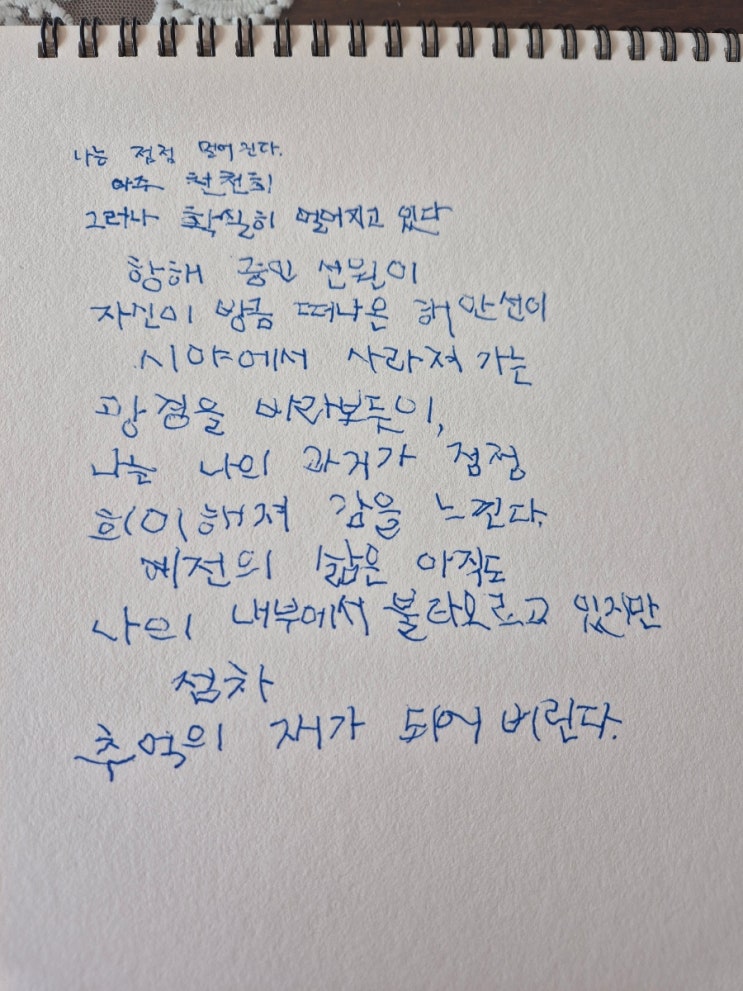 나는 점점 멀어진다.
아주 천천히
그러나 확실히 멀어지고 있다
항해 중인 선원이
자신이 방금 떠나온 해안선이
시야에서 사라져 가는
광경을 바라보듯이,
나는 나의 과거가 점점
희미해져 감을 느낀다.
예전의 삶은 아직도
나의 내부에서 불타오르고 있지만
점차
추억의 재가 되어 버린다.